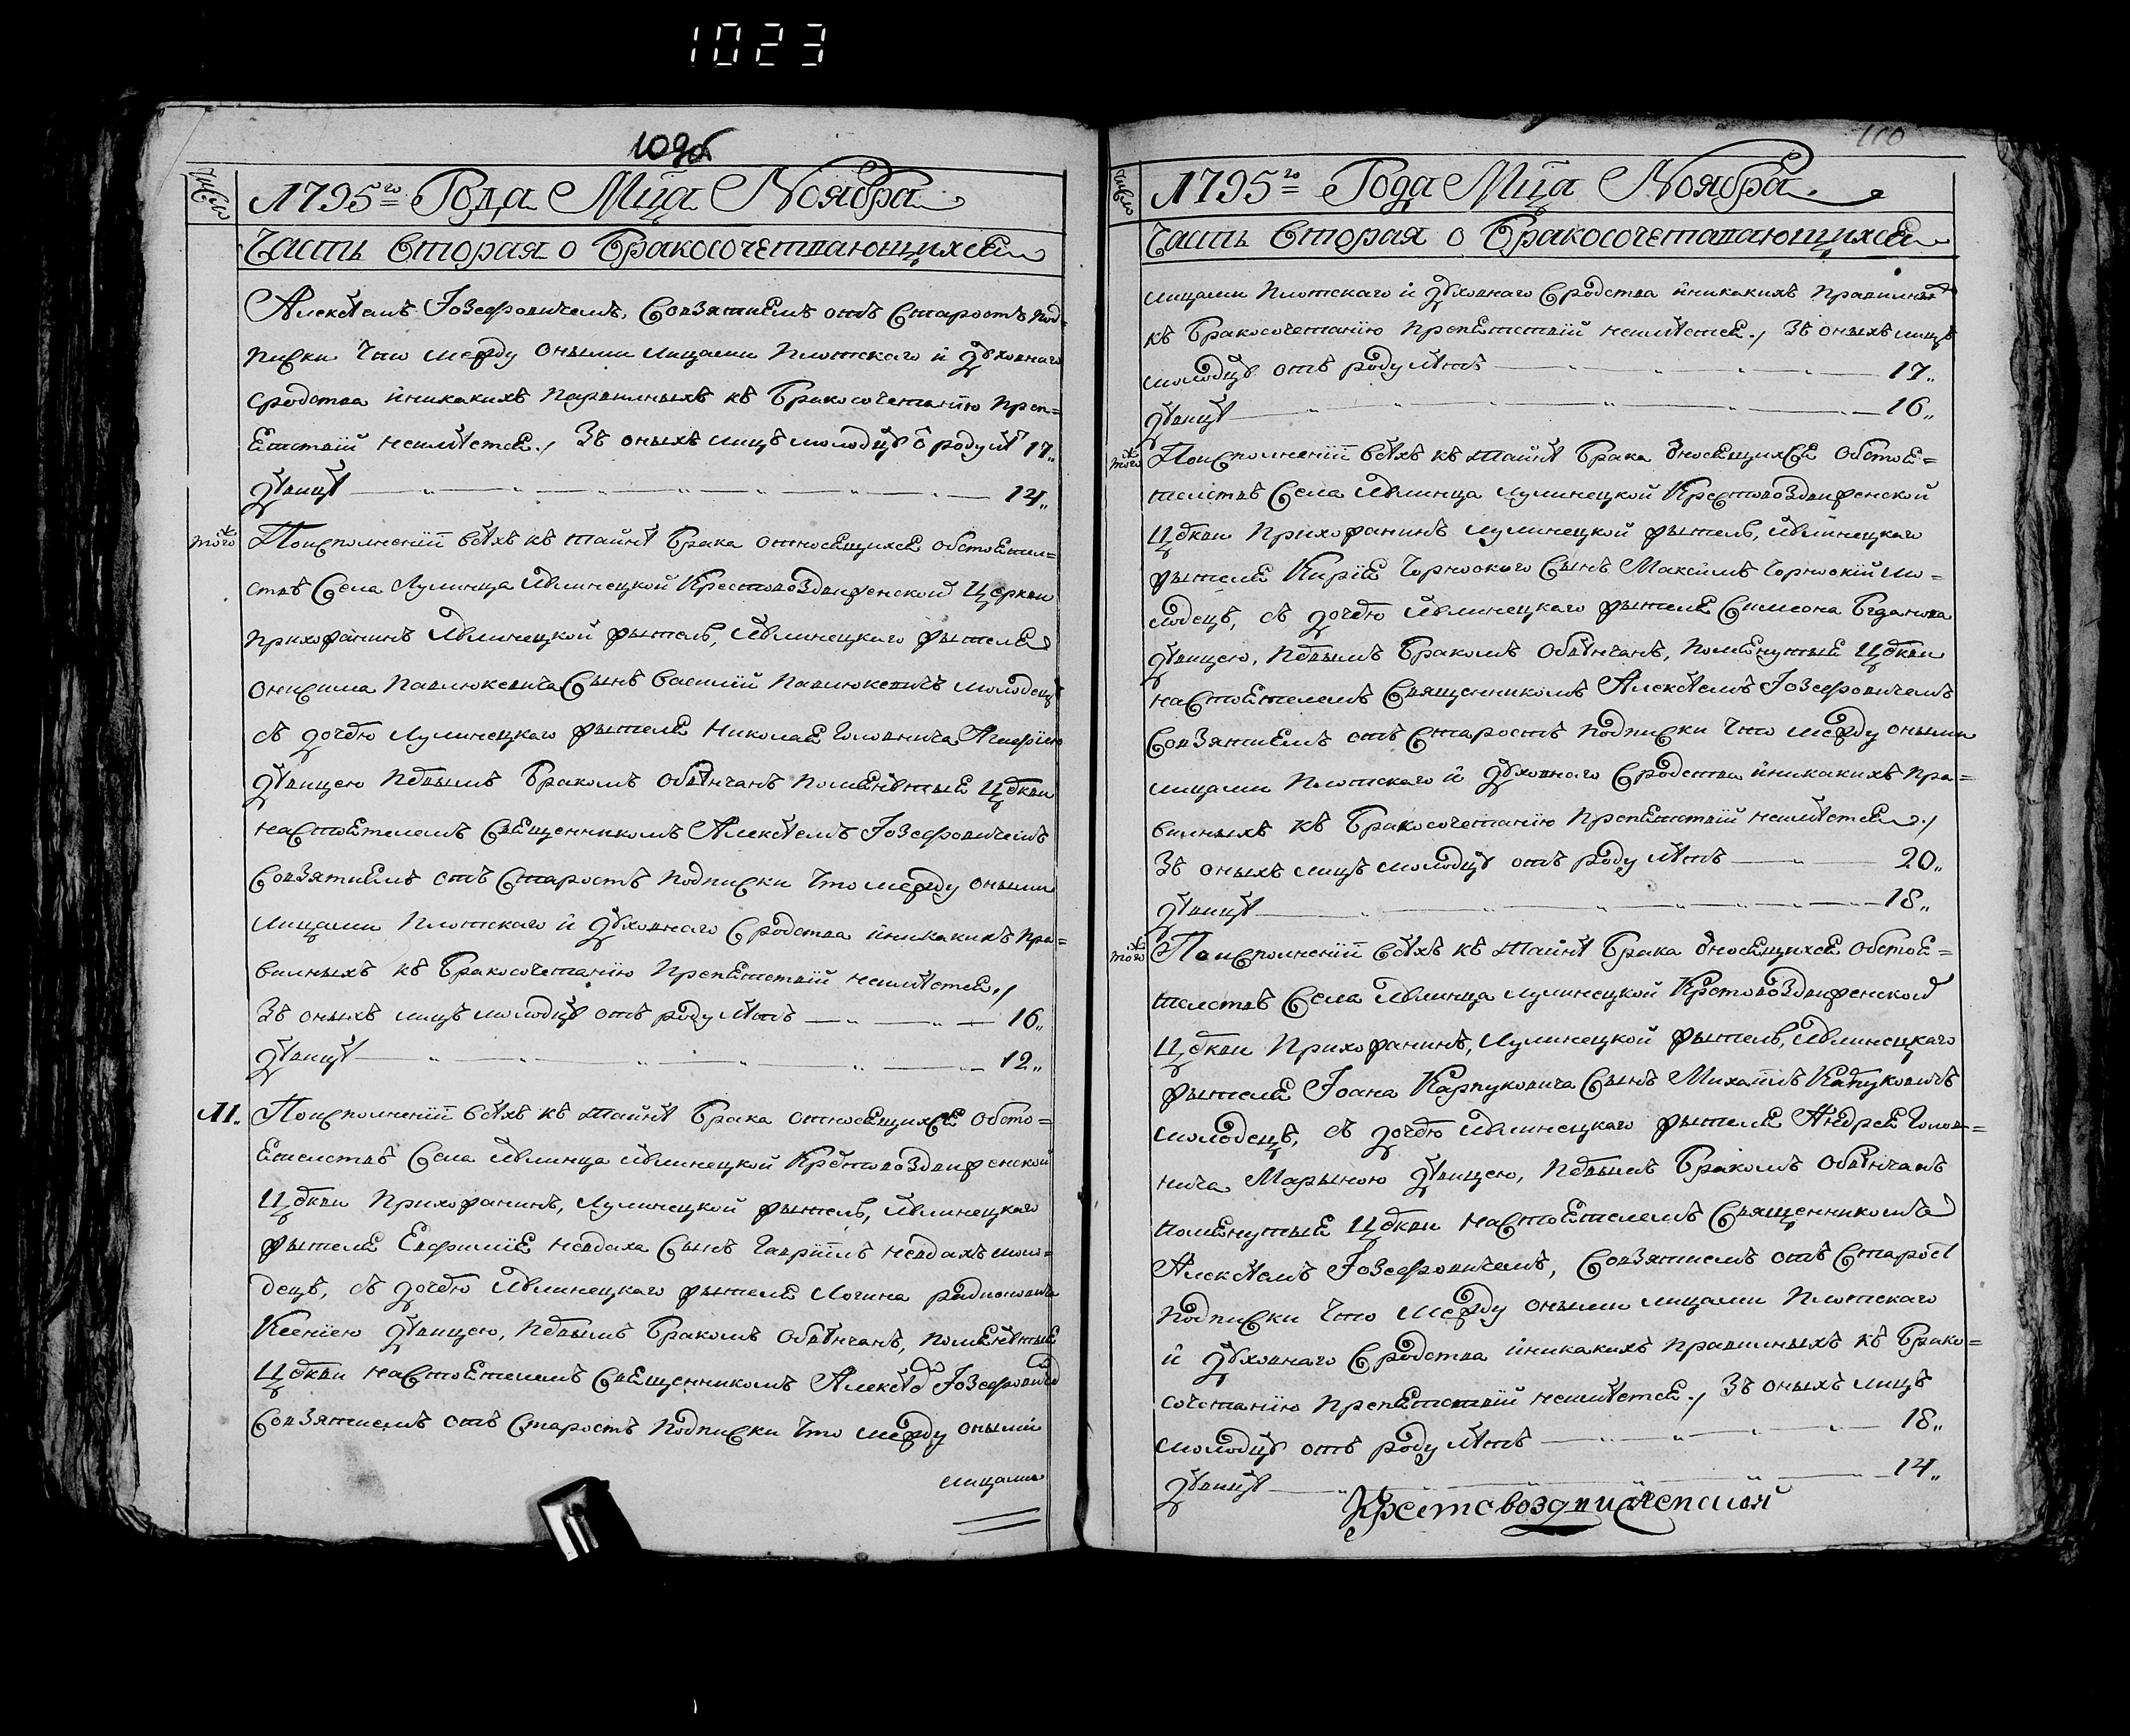 1023
109об
число
1795го Года Мца Ноября
Часть вторая о бракосочетавающихся
Алексѣемъ Іозефовичемъ, Совзятиемъ отъ Старостъ под-
писки что между оными лицами плотскаго и духовнаго
сродства и никакихъ правилныхъ къ бракосочетанію преп-
ятствій неимѣется, Зъ оныхъ лицъ молодцу ѿ роду лѣтъ 17,,
дѣвицѣ 14,,
тогож Поисполненіи всѣхъ къ тайнѣ брака относящихся обстоятел-
ствъ Села Лулинца Лулинецкой Крестовоздвиженской Церкви
прихожанинъ Лулинецкой житель, Лулинецкого жителя
Онисима Павлюкевича Сынъ Василій Павлюкевичъ молодецъ
съ дочерю Лулинецкаго жителя Николая Головнича Агафіею
дѣвицею первымъ бракомъ обвѣнчанъ помянутыя Церкви
настоятелемъ Священникомъ Алексѣемъ Іозефовичемъ
Совзятиемъ отъ Старостъ подписки что между оными
лицами плотскаго и духовнаго Сродства и никакихъ пра-
вилныхъ къ бракосочетанію препятствій неимѣется,
Зъ оныхъ лицъ молодцу отъ роду лѣтъ 16,,
дѣвицѣ 12,,
11. Поисполненіи всѣхъ къ тайнѣ брака относящихся обсто-
ятелствъ Села Лулинца Лулинецкой Крестовоздвиженской
Церкви прихожанинъ, Лулинецкой житель, Лулинецкаго
жителя Евфимія Невдаха Сынъ Гавріилъ Невдахъ моло-
децъ, съ дочерю Лулинецкаго жителя Логина Радионовича
Ксеніею дѣвицею, первымъ бракомъ обвѣнчанъ, помянутыя
Церкви настоятелемъ Священникомъ Алексѣемъ Іозефовичемъ
Совзятиемъ отъ Старостъ подписки что между оными
лицами
110
число
1795го Года Мца Ноября
Часть вторая о бракосочетавающихся
лицами плотскаго и духовнаго Сродства и никакихъ правилныхъ
къ бракосочетанію препятствій неимѣется, Зъ оныхъ лицъ
молодцу отъ роду лѣтъ 17,,
дѣвицѣ 16,,
тогож Поисполненіи всѣхъ къ тайнѣ брака ѿносящихся обстоя-
телствъ Села Лулинца Лулинецкой Крестовоздвиженской
Церкви прихожанинъ Лулинецкой житель, Лулинецкаго
жителя Кирія Чорноокого Сынъ Максимъ Чорноокій мо-
лодецъ, съ дочерю Лулинецкаго жителя Симеона Бгданова
дѣвицею, первымъ бракомъ обвѣнчанъ, помянутыя Церкви
настоятелемъ Священникомъ Алексѣемъ Іозефовичемъ
Совзятиемъ отъ Старостъ подписки что между оными
лицами плотскаго и духовнаго Сродства и никакихъ пра-
вилныхъ къ бракосочетанію препятствій неимѣется,
Зъ оныхъ лицъ молодцу отъ роду лѣтъ 20,,
дѣвицѣ 18,,
тогож Поисполненіи всѣхъ къ тайнѣ брака ѿносящихся обстоя-
телствъ Села Лулинца Лулинецкой Крстовоздвиженской
Церкви прихожанинъ, Лулинецкой житель, Лулинецкаго
жителя Іоана Карпуковича Сынъ Михаилъ Карпуковичъ
молодецъ, съ дочерю Лулинецкаго жителя Андрея Голов-
нича Марыною дѣвицею, первымъ бракомъ обвѣнчанъ
помянутыя Церкви настоятелемъ Священникомъ
Алексѣемъ Іозефовичемъ, Совзятиемъ отъ Старост
подписки что между оными лицами плотскаго
и духовнаго Сродства и никакихъ правилныхъ къ брако-
сочетанію препятствій неимѣется, Зъ оныхъ лицъ
молодцу отъ роду лѣтъ 18,,
дѣвицѣ 14,,
Крестовоздвиженской